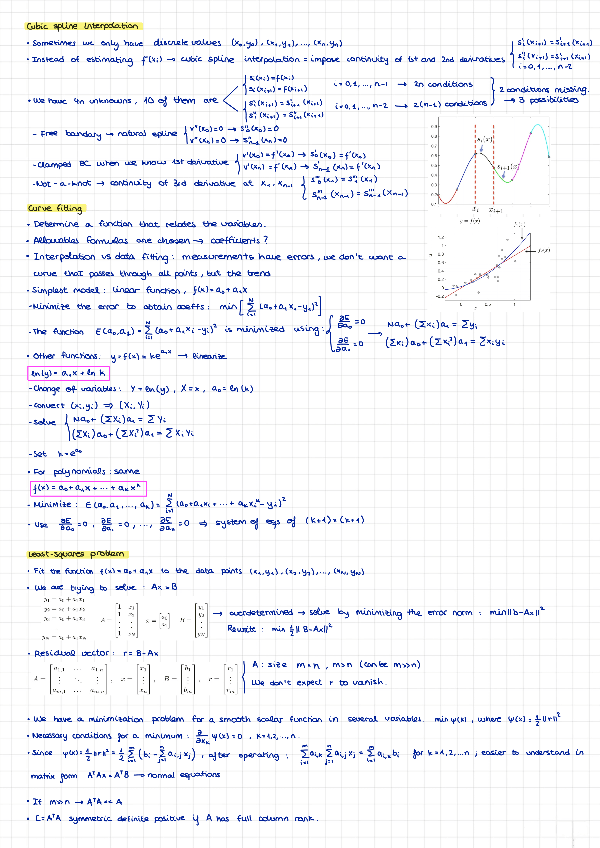 Cubic spline interpolation
• Sometimes we only have discrete values (x₀,y₀), (x₁,y₁), ..., (xₙ,yₙ)
• Instead of estimating f'(xᵢ) → cubic spline interpolation = impose continuity of 1st and 2nd derivatives { Sᵢ'(xᵢ₊₁) = S'ᵢ₊₁(xᵢ₊₁)
Sᵢ''(xᵢ₊₁) = S''ᵢ₊₁(xᵢ₊₁)
i=0,1,...,n-2
• We have 4n unknowns,
Sᵢ(xᵢ) = f(xᵢ)
Sᵢ(xᵢ₊₁) = f(xᵢ₊₁)
i=0,1,...,n-1 → 2n conditions
Sᵢ'(xᵢ₊₁) = S'ᵢ₊₁(xᵢ₊₁)
Sᵢ''(xᵢ₊₁) = S''ᵢ₊₁(xᵢ₊₁)
i=0,1,...,n-2 → 2(n-1) conditions
2 conditions missing.
→ 3 possibilities
- Free boundary → natural spline { v''(x₀)=0 → S₀''(x₀)=0
v''(xₙ)=0 → S''ₙ₋₁(xₙ)=0
- Clamped BC when we know 1st derivative { v'(x₀)=f'(x₀) → S₀'(x₀) = f'(x₀)
v'(xₙ)=f'(xₙ) → S'ₙ₋₁(xₙ) = f'(xₙ)
- Not-a-knot → continuity of 3rd derivative at x₁, xₙ₋₁ { S₀'''(x₁) = S₁'''(x₁)
S'''ₙ₋₂(xₙ₋₁) = S'''ₙ₋₁(xₙ₋₁)
Curve fitting
• Determine a function that relates the variables.
• Allowables formulas are chosen → coefficients?
• Interpolation vs data fitting: measurements have errors, we don't want a
curve that passes through all points, but the trend
• Simplest model: linear function, f(x) = a₀ + a₁x
- Minimize the error to obtain coeffs: min[∑(a₀ + a₁xᵢ - yᵢ)²]
- The function E(a₀,a₁) = ∑(a₀ + a₁xᵢ - yᵢ)² is minimized using: { ∂E/∂a₀ = 0
∂E/∂a₁ = 0
→ Na₀ + (∑xᵢ)a₁ = ∑yᵢ
(∑xᵢ)a₀ + (∑xᵢ²)a₁ = ∑xᵢyᵢ
• Other functions. y = f(x) = ke^(a₁x) → linearize
ln(y) = a₁x + ln k
- Change of variables: Y = ln(y), X = x, a₀ = ln(k)
- Convert (xᵢ,yᵢ) ⇒ (Xᵢ,Yᵢ)
- Solve { Na₀ + (∑Xᵢ)a₁ = ∑Yᵢ
(∑Xᵢ)a₀ + (∑Xᵢ²)a₁ = ∑XᵢYᵢ
- Set k = e^(a₀)
• For polynomials: same
f(x) = a₀ + a₁x + ... + aₖxᵏ
- Minimize: E(a₀,a₁,...,aₖ) = ∑(a₀ + a₁xᵢ + ... + aₖxᵢᵏ - yᵢ)²
- Use ∂E/∂a₀ = 0, ∂E/∂a₁ = 0, ..., ∂E/∂aₖ = 0 ⇒ system of eqs of (k+1)×(k+1)
Least-squares problem
• Fit the function f(x) = a₀ + a₁x to the data points (x₁,y₁), (x₂,y₂), ..., (x_N,y_N)
• We are trying to solve: Ax = B
→ overdetermined → solve by minimizing the error norm: min‖b-Ax‖²
Rewrite: min ½‖B-Ax‖²
• Residual vector: r = B-Ax
A: size m×n, m>n (can be m>>n)
We don't expect r to vanish.
• We have a minimization problem for a smooth scalar function in several variables. min ψ(x), where ψ(x) = ½‖r‖²
• Necessary conditions for a minimum: ∂/∂xₖ ψ(x) = 0, k=1,2,...,n
• Since ψ(x) = ½‖r‖² = ½∑(bᵢ - ∑aᵢ,ⱼxⱼ)², after operating: ∑aᵢ,ₖ∑aᵢ,ⱼxⱼ = ∑aᵢ,ₖbᵢ for k=1,2,...,n; easier to understand in
matrix form AᵀAx = AᵀB → normal equations
• If m>>n → AᵀA << A
• C = AᵀA symmetric definite positive if A has full column rank.